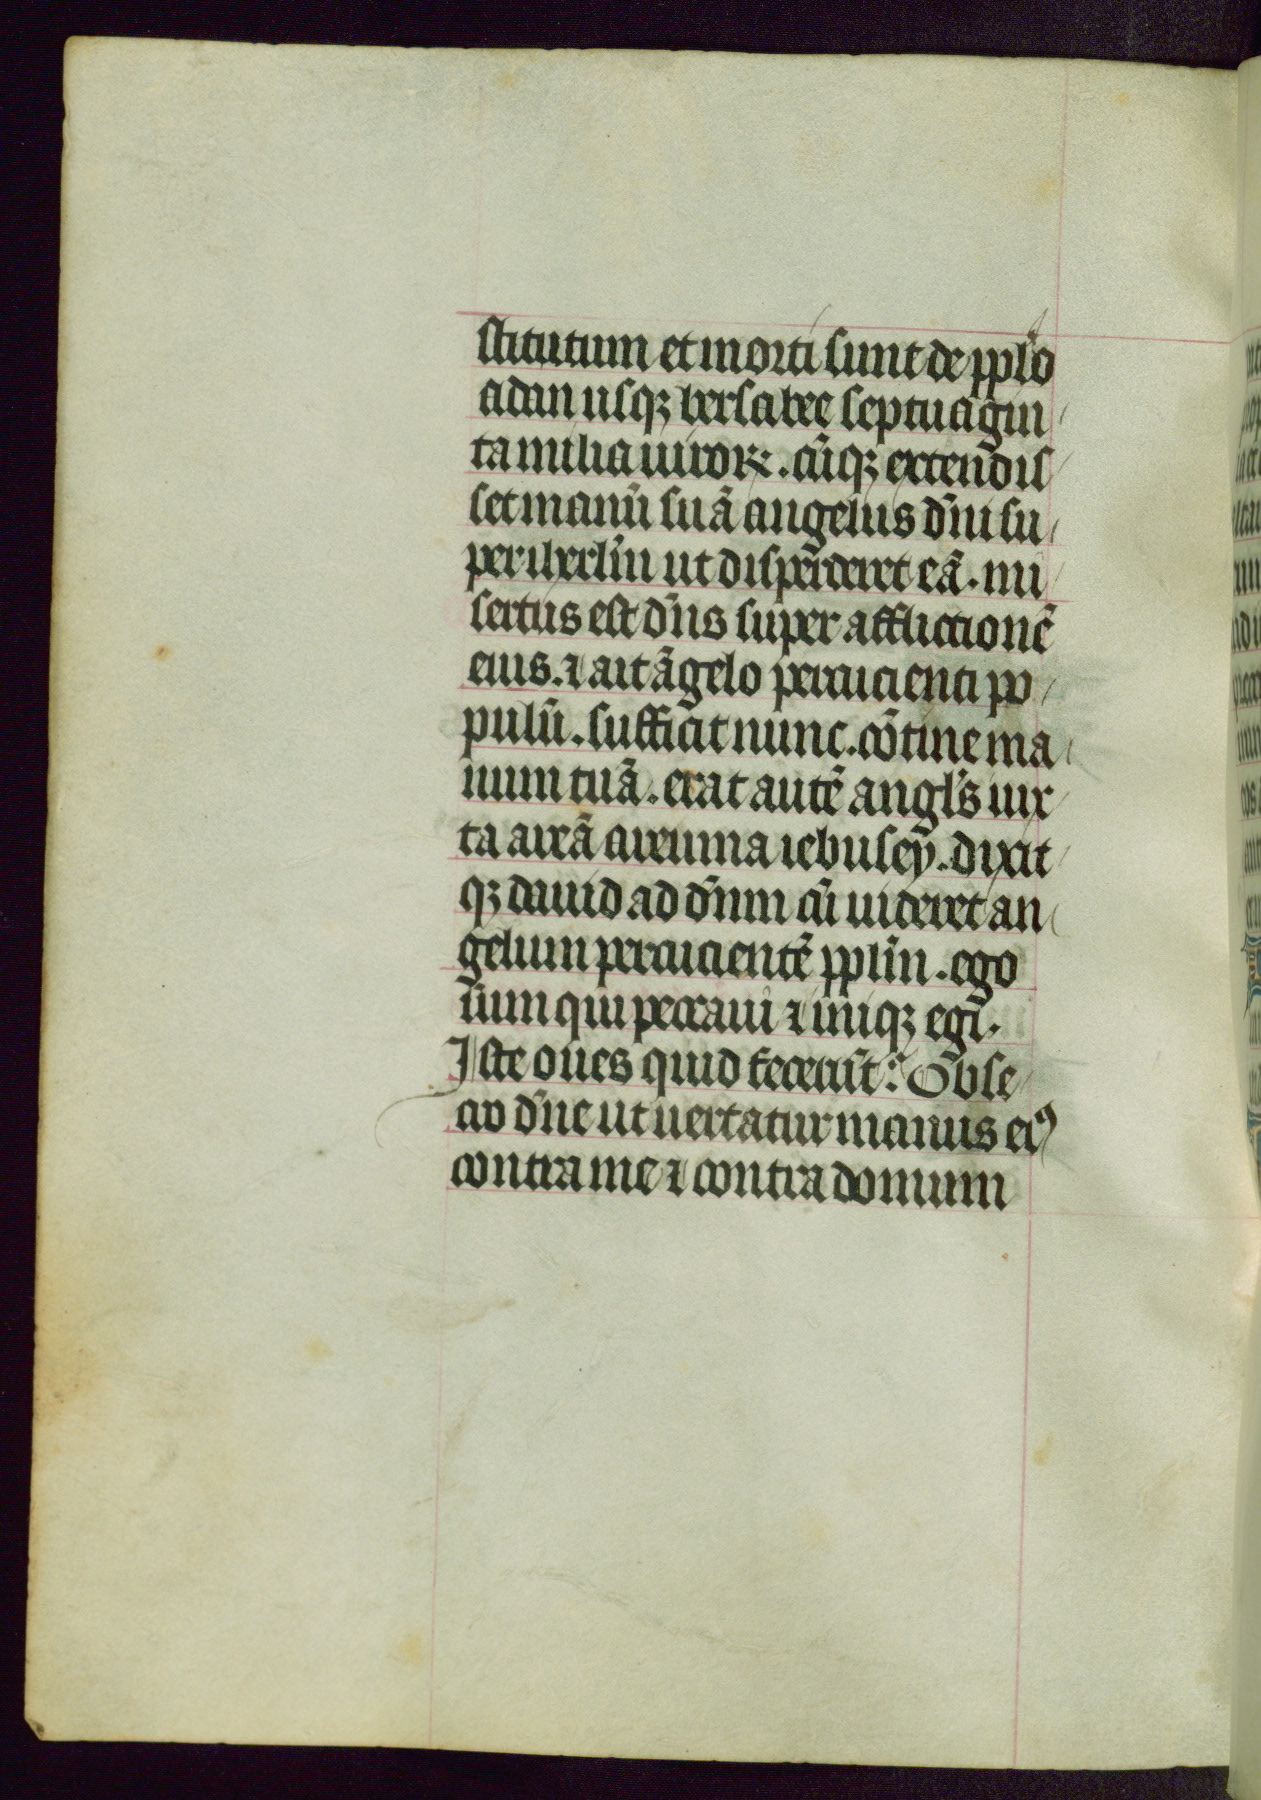 stitutum et morti sunt de ppl̄o
a dan usqꝫ bersabee septuagin
ta milia uiroꝝ. cūqꝫ extendis
set manū suā angelus dn̄i su
per ihērlm̄ ut disperderet eā. mi
sertus est dn̄s super afflictionē
eius. ⁊ ait āgelo percucienti po
pulū. sufficit nunc. cōtine ma
num tuā. erat autē angl̄s iux
ta areā areuma iebusey. dixit
qꝫ dauid ad dn̄m cū uideret an
gelum percucientē ppl̄m. ego
sum qui peccaui ⁊ iniqꝫ egi.
Iste oues quid fecerūt? Obse
cro dn̄e ut uertatur manus eiꝰ
contra me ⁊ contra domum